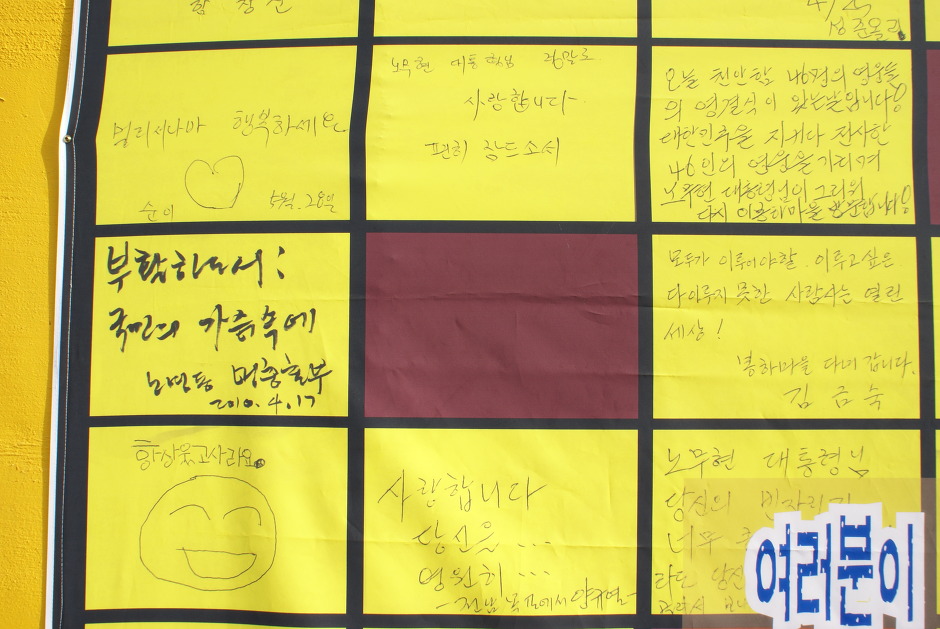 4/25
성준올림
멀리서나마 행복하세요
순이 5월. 28일
노무현 대통령님 정말로
사랑합니다
편히 잠드소서
오늘 천안함 46명의 영웅들
의 영결식이 있는날입니다!
대한민국을 지키다 전사한
46인의 영웅을 기리며
노무현 대통령님이 그리워
다시 이 봉하마을 방문합니다!
부활하소서:
국민의 가슴속에
2010. 4. 17
모두가 이루어야할 이루고싶은
다이루지 못한 사람사는 열린
세상!
봉하마을 다녀 갑니다.
김금숙
항상웃고사라요
사랑합니다
당신을 ...
영원히 ...
노무현 대통령님
당신의 빈자리가
너무
라는 당신
여러분이